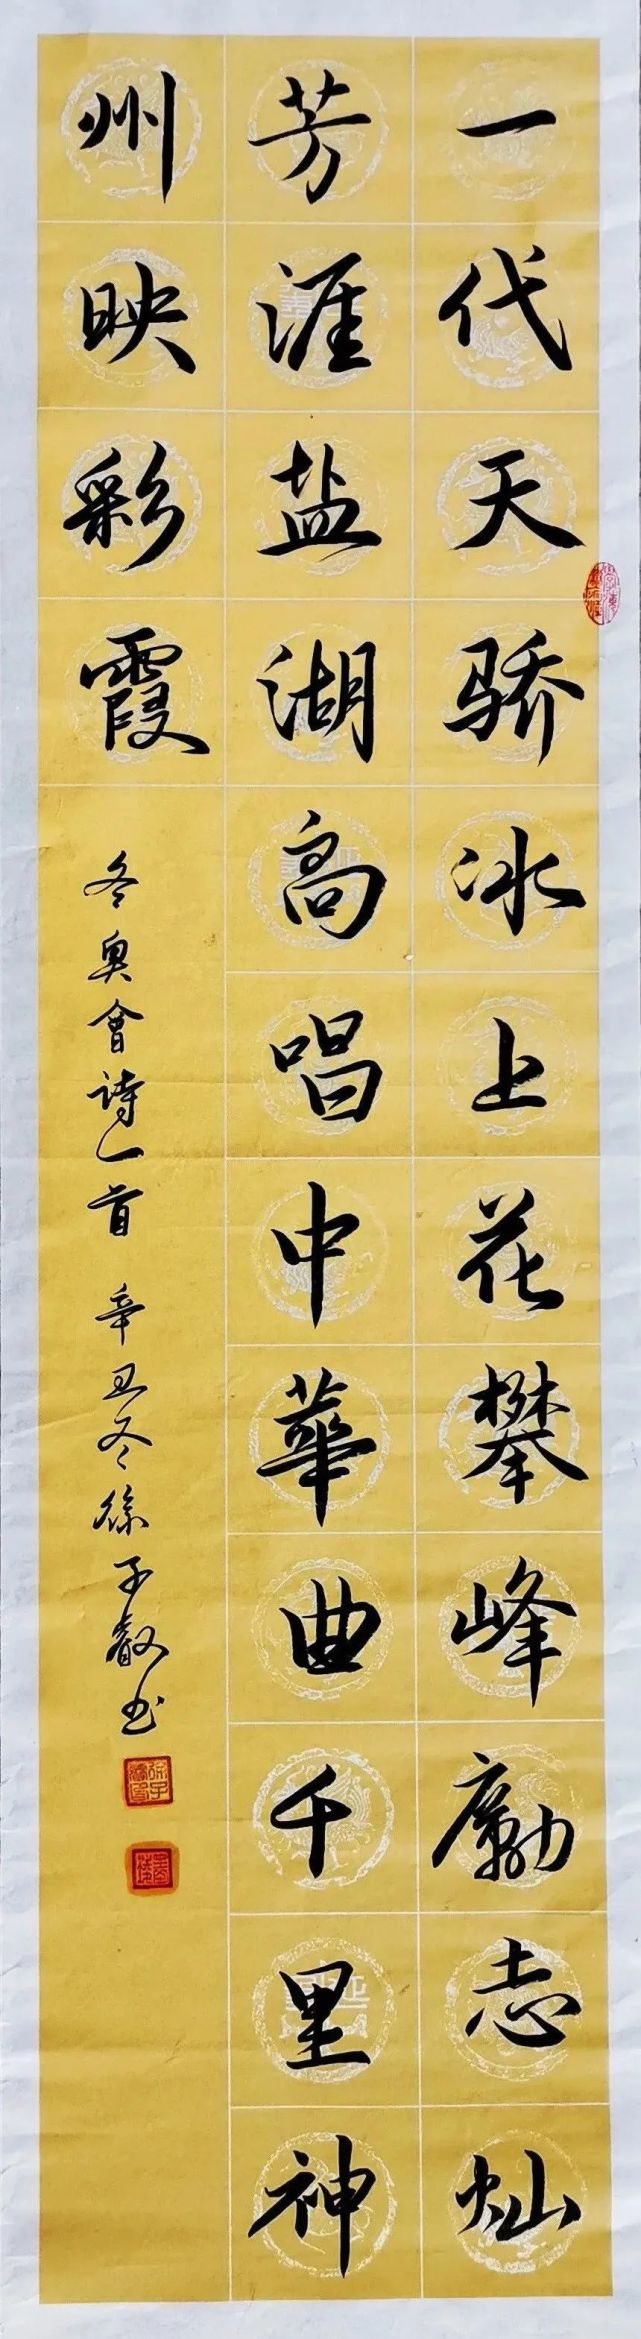 一代天骄冰上花攀峰勵志灿
芳涯盐湖高唱中華曲千里神
州映彩霞
冬奥會诗一首 辛丑冬徐子叡书